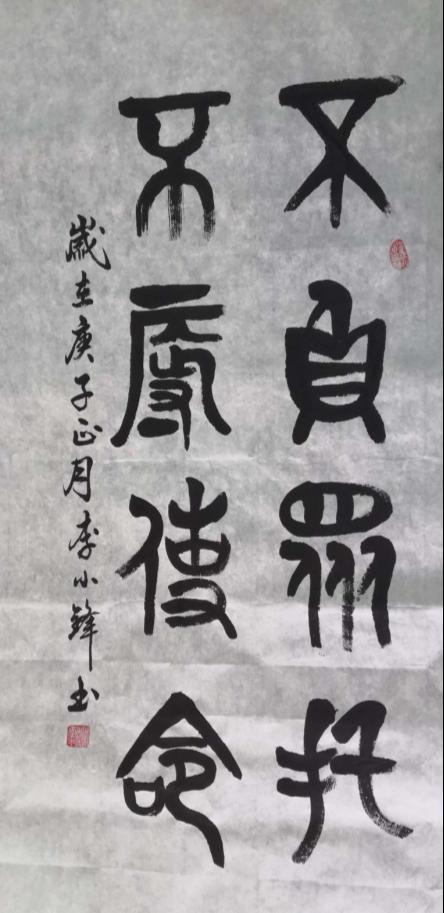 不負眾托
不辱使命
歲在庚子正月李小鋒书